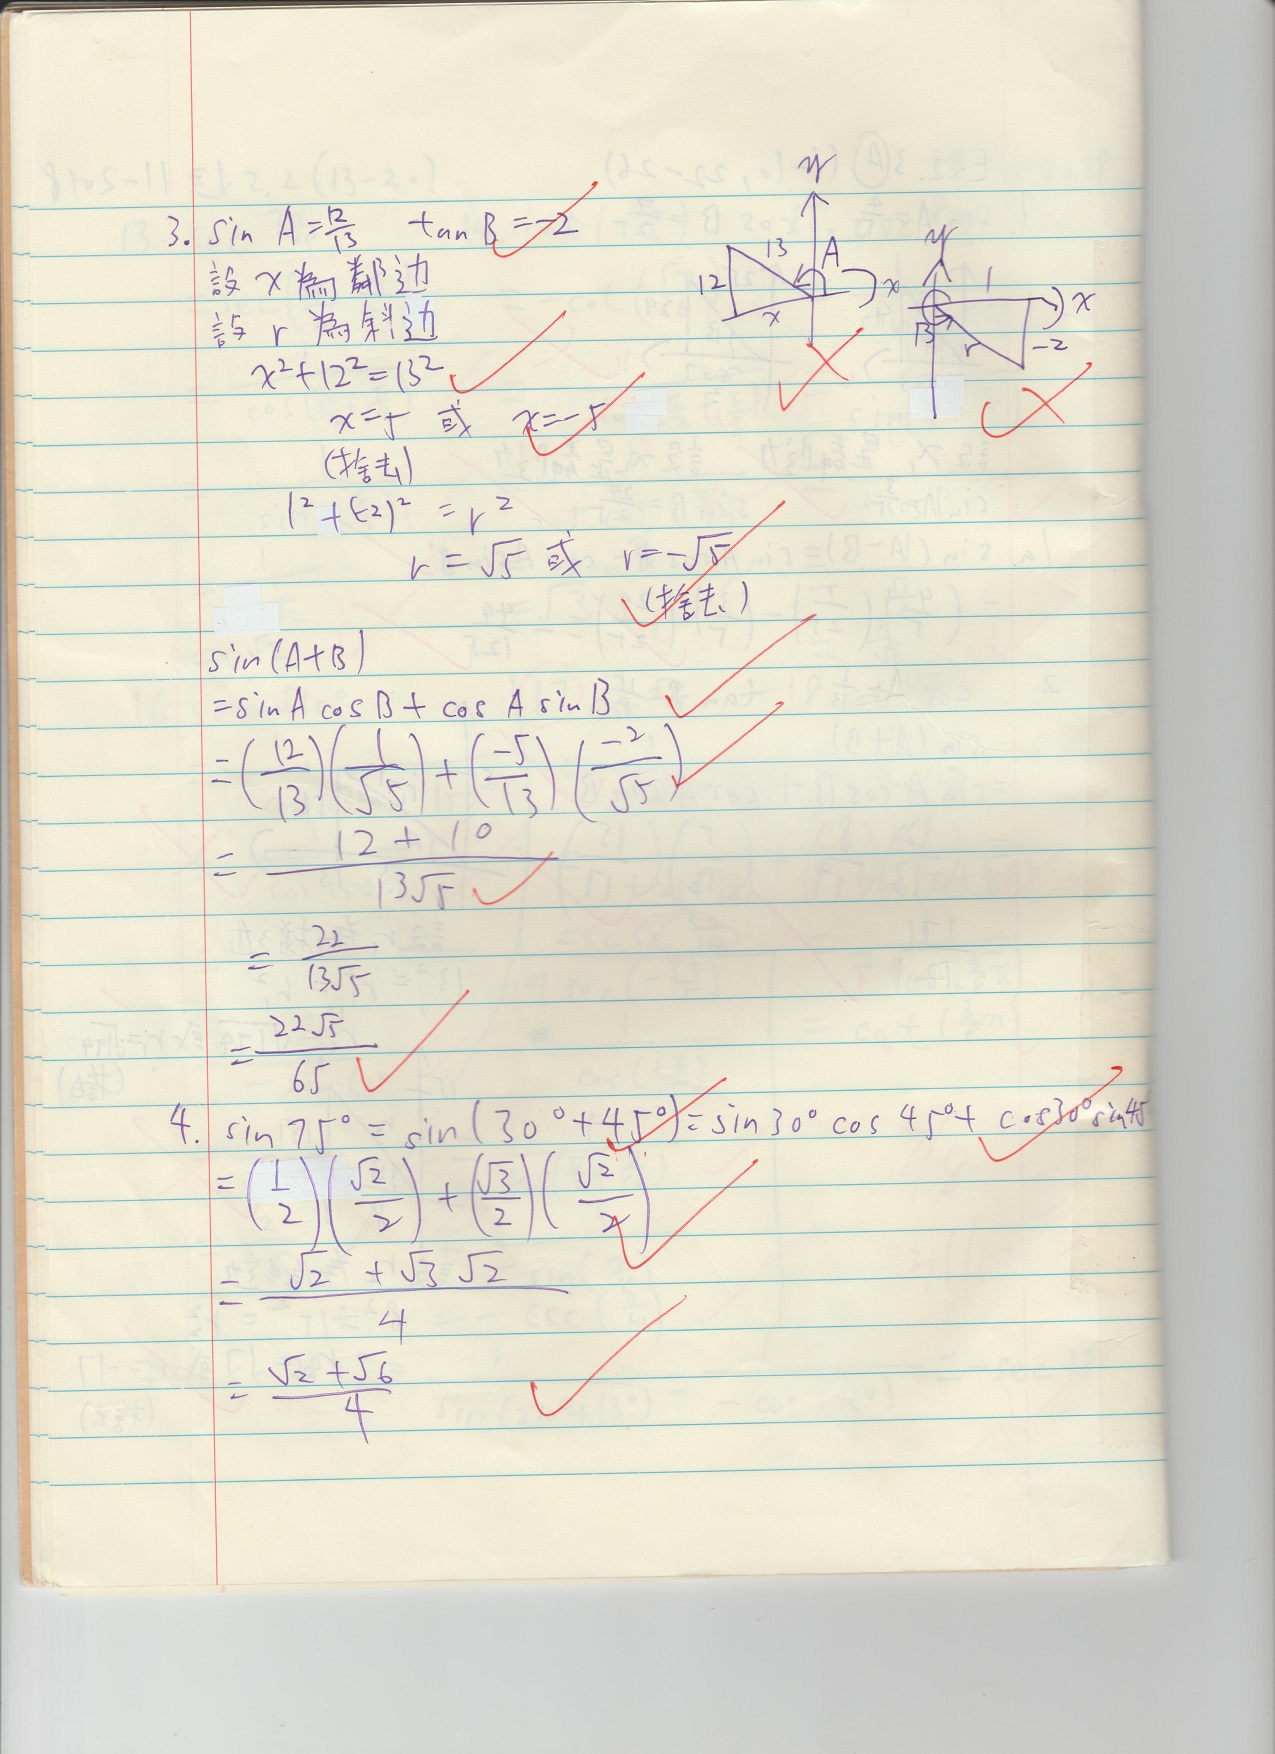 3. sin A = 12/13 tan B = -2
設 x 為鄰边
設 r 為斜边
x² + 12² = 13²
x = 5 或 x = -5
(捨去)
1² + (-2)² = r²
r = √5 或 r = -√5
(捨去)
y
13 A
12 x
x
y
1
x
B r -2
sin(A+B)
= sin A cos B + cos A sin B
= (12/13)(1/√5) + (-5/13)(-2/√5)
= (12 + 10)/(13√5)
= 22/(13√5)
= 22√5/65
4. sin 75° = sin(30° + 45°) = sin 30° cos 45° + cos 30° sin 45
= (1/2)(√2/2) + (√3/2)(√2/2)
= (√2 + √3 √2)/4
= (√2 + √6)/4